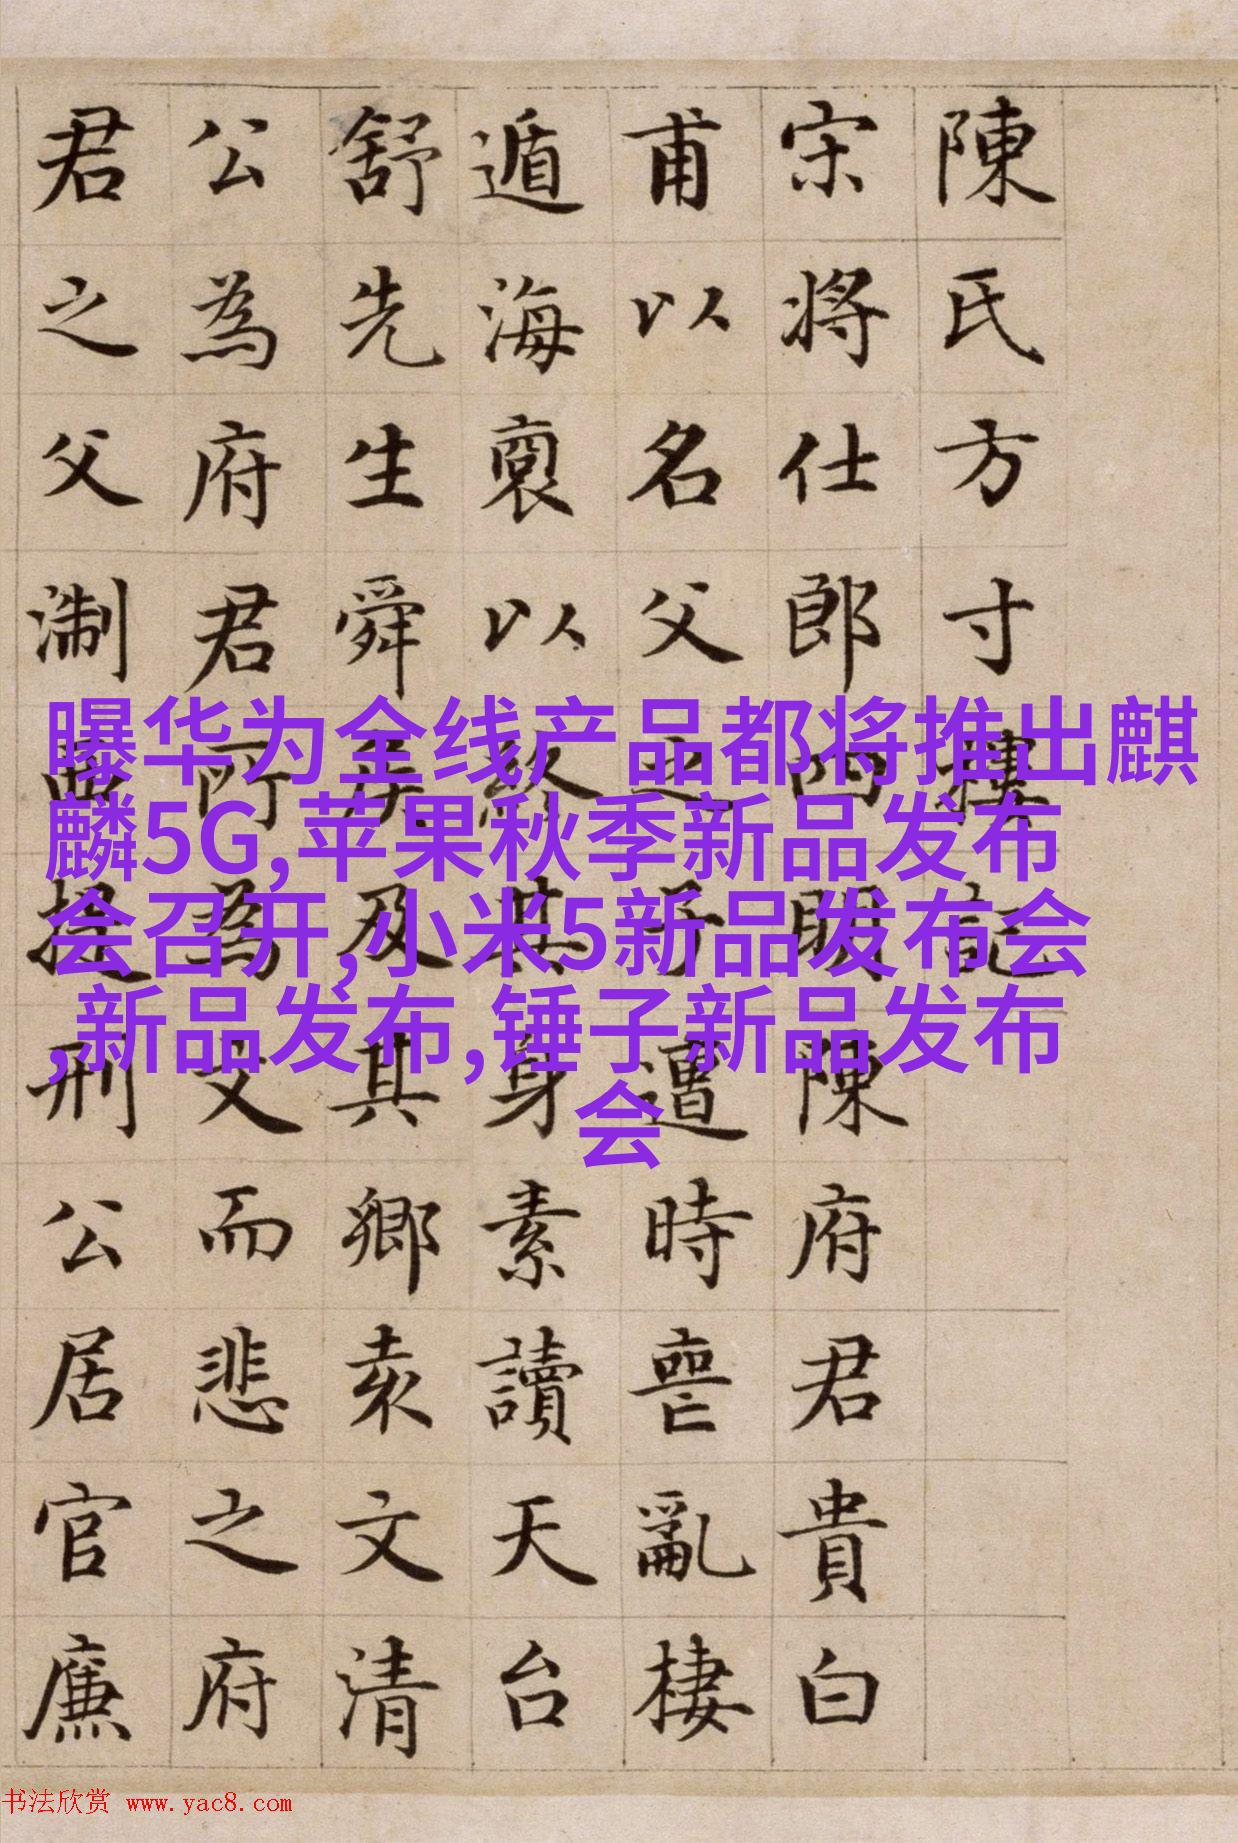 陳氏方寸樓記
宋將仕郎四明陳府君貴白
甫以名父之子遭時喪亂棲
遁海裔以終其身素讀天台
舒先生舜矦及其鄉袁文清
公為府君所為文而悲之府
君之父淛西提刑公居官廉
曝华为全线产品都将推出麒
麟5G,苹果秋季新品发布
会召开,小米5新品发布会
,新品发布,锤子新品发布
会
书法欣赏 www.yac8.com